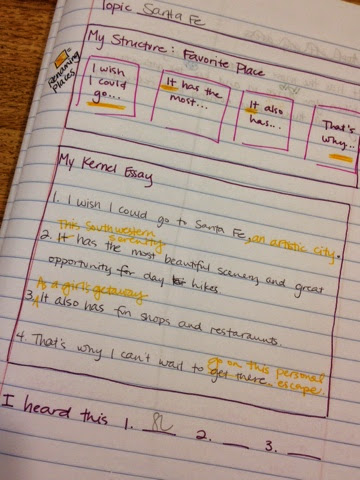 Topic Santa Fe
My Structure: Favorite Place
Renaming Places
I wish I could go...
It has the most...
It also has...
That's why...
My Kernel Essay
1. I wish I could go to Santa Fe, an artistic city.
This Southwestern serenity
2. It has the most beautiful scenery and great
opportunity for day hikes
As a girls getaway
3. It also has fun shops and restaraunts.
go on this personal
4. That's why I can't wait to get there. escape.
I heard this 1. 2. 3.